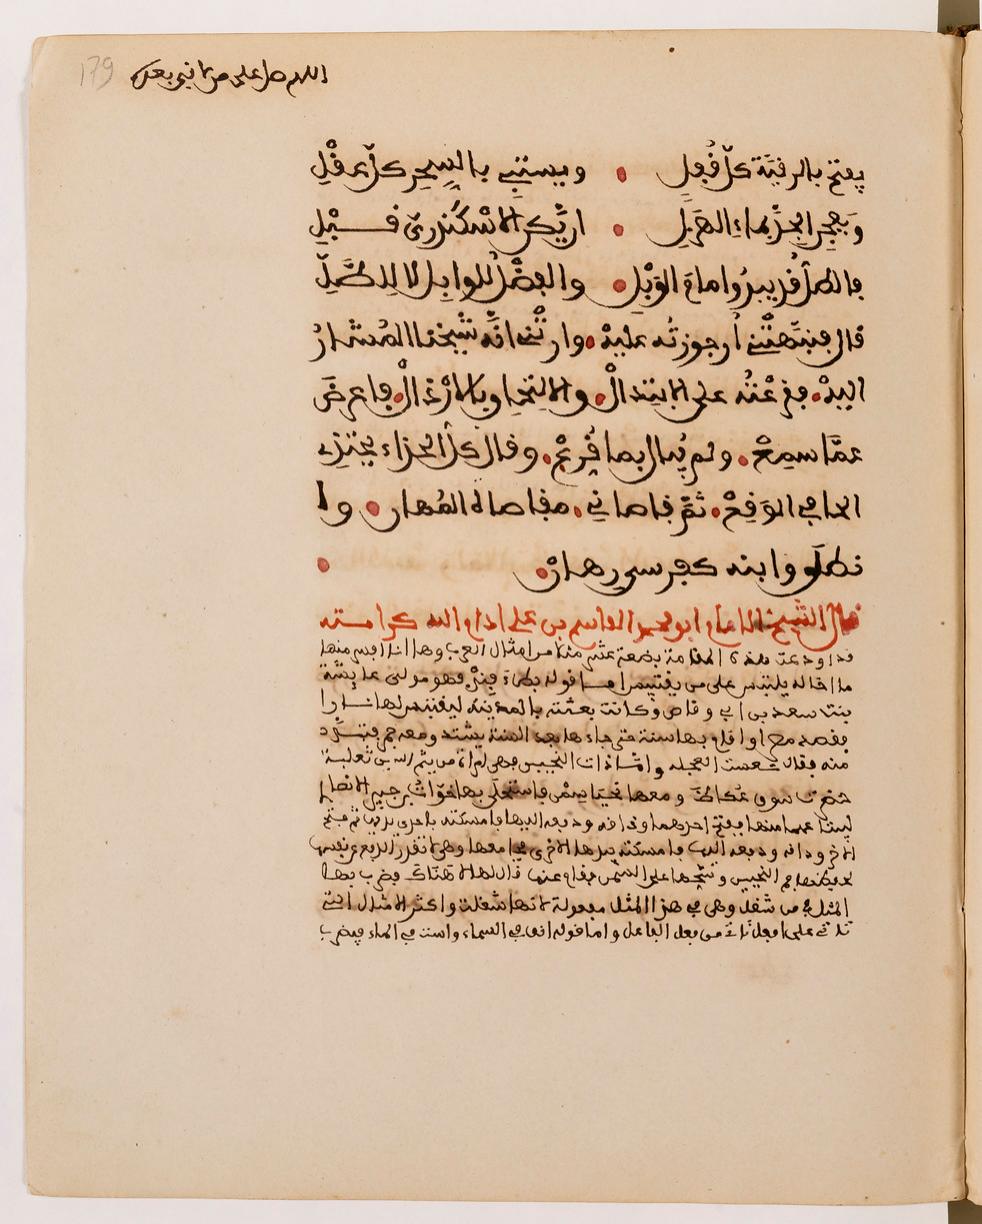 179 اللهم صل على من لا نبي بعده
يفتح بالرقية كل قفل • ويستبي بالسحر كل عقل
ويعجن الخبز بماء الهزل • ان يكن الاسكندري قبلي
فالطل قد يبدو امام الوبل • والفضل للوابل لا للطل
قال فنبهتني أرجوزته عليه • وارتني انه شيخنا المشار
اليه • فقرعته على الابتذال • والالتحاق بالارذال • فاعرض
عما سمع • ولم يبال بما قرع • وقال كل الحذاء يحتذي
الحافي الوقع • ثم قاصاني • مقاصاة المهان • و
نطلق وابنه كفرسي رهان •
قال الشيخ الامام ابو محمد القاسم بن علي ادام الله كرامته
قد اودعت هذه المقامة بضعة عشر مثلا من امثال العرب وها انا افسر منها
ما اخاله يلتبس على من يقتبس اما قوله بطء فند فهو مولى عايشة
بنت سعد بن ابي وقاص وكانت بعثته بالمدينة ليقتبس لها نارا
فقصد مصر واقام بها سنة حتى جاءها بعد السنة يشتد ومعه جمر فتبدد
منه فقال تعست العجلة واما ذات النحيين فهي امراة من تيم الله بن ثعلبة
حضرت سوق عكاظ ومعها نحيا سمن فاستخلى بها خوات بن جبير الانصاري
ليبتاعهما منها ففتح احدهما وذاقه ودفعه اليها فامسكته باحدى يديها ثم فتح
الاخر وذاقه ودفعه اليها فامسكته بيدها الاخرى وهي لا تقدر الدفع عن نفسها
لحفظها فم النحيين وشحها على السمن فقام عنها قال لها لا هناك فضرب بها
المثل من شغل وهي في هذا المثل مفعولة لانها شغلت واكثر الامثال التي
تاتي على افعل تاتي من فعل الفاعل واما قوله انف في السماء واست في الماء فيضرب